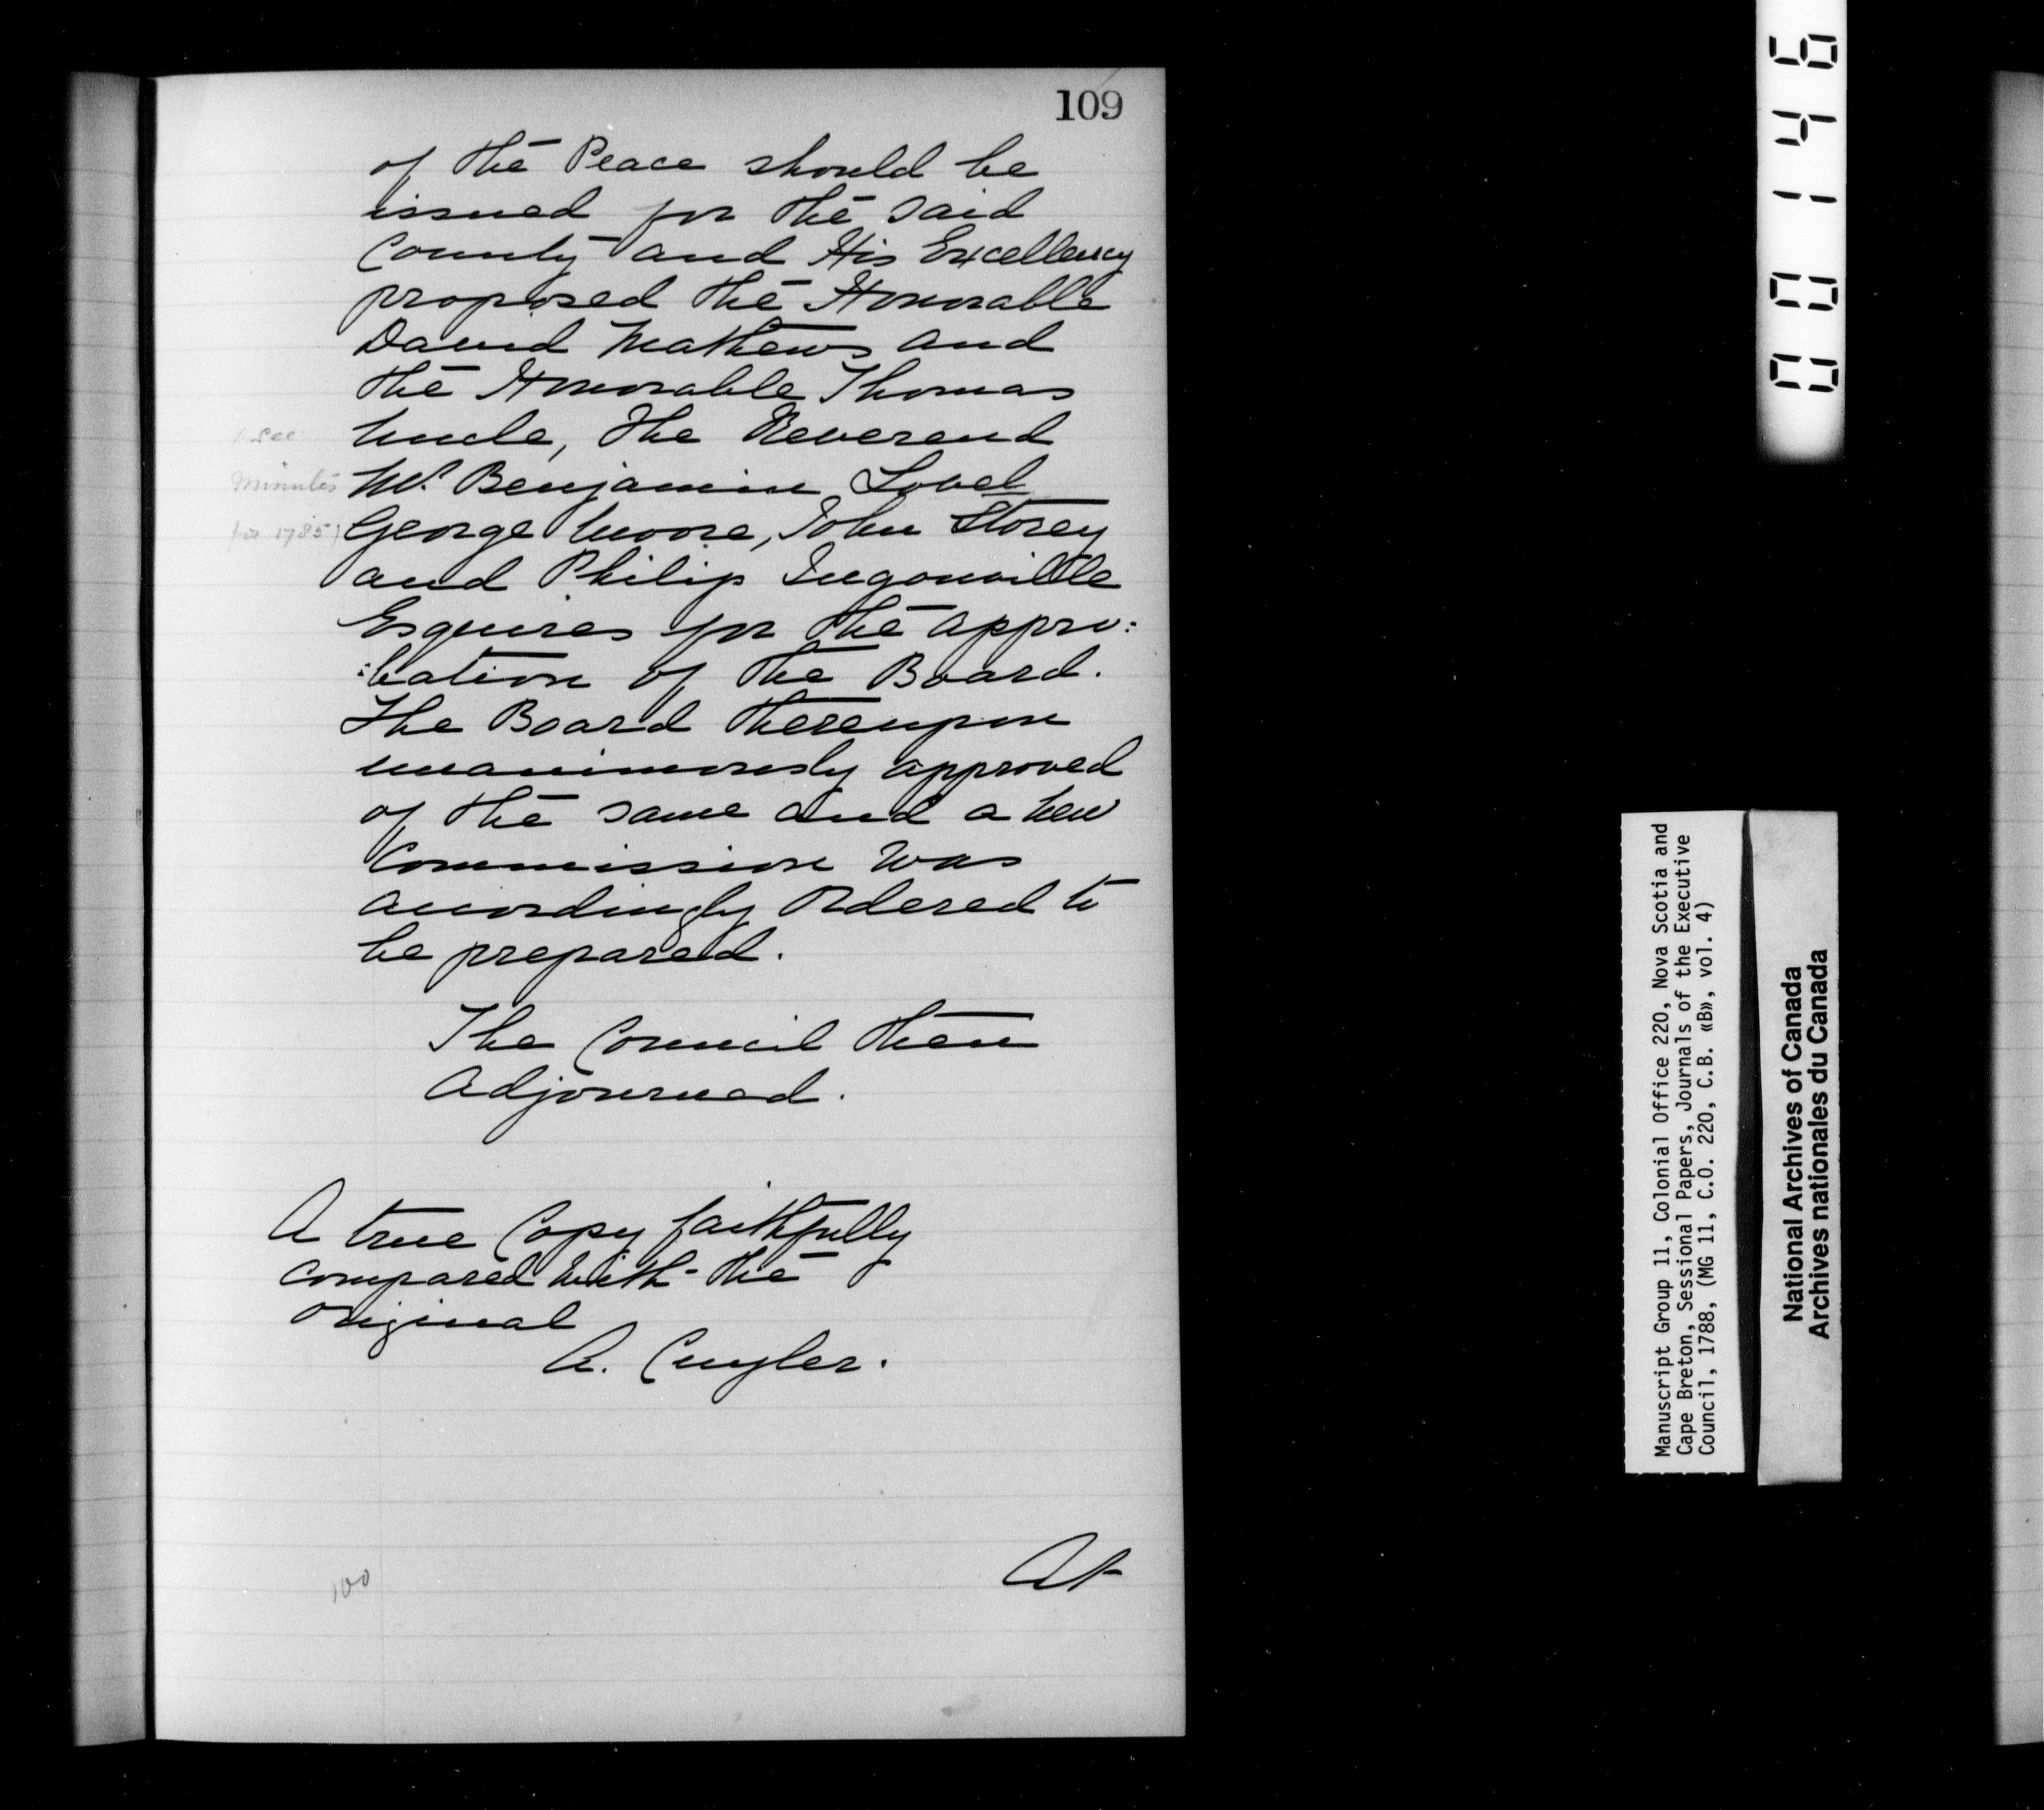 109
of the Peace should be
issued for the said
County and His Excellency
proposed the Honorable
David Mathews and
the Honorable Thomas
Uncle, The Reverend
Mr. Benjamin Lovel
George Moore, John Storey
and Philip Ingouville
Esquires for the appro:
:bation of the Board.
The Board thereupon
unanimously approved
of the same and a new
Commission was
accordingly Ordered to
be prepared.
The Council then
adjourned.
A true Copy faithfully
compared with the
Original
A. Cuyler.
At
(See
Minutes
for 1785)
100
00146
Manuscript Group 11, Colonial Office 220, Nova Scotia and
Cape Breton, Sessional Papers, Journals of the Executive
Council, 1788, (MG 11, C.O. 220, C.B. «B», vol. 4)
National Archives of Canada
Archives nationales du Canada